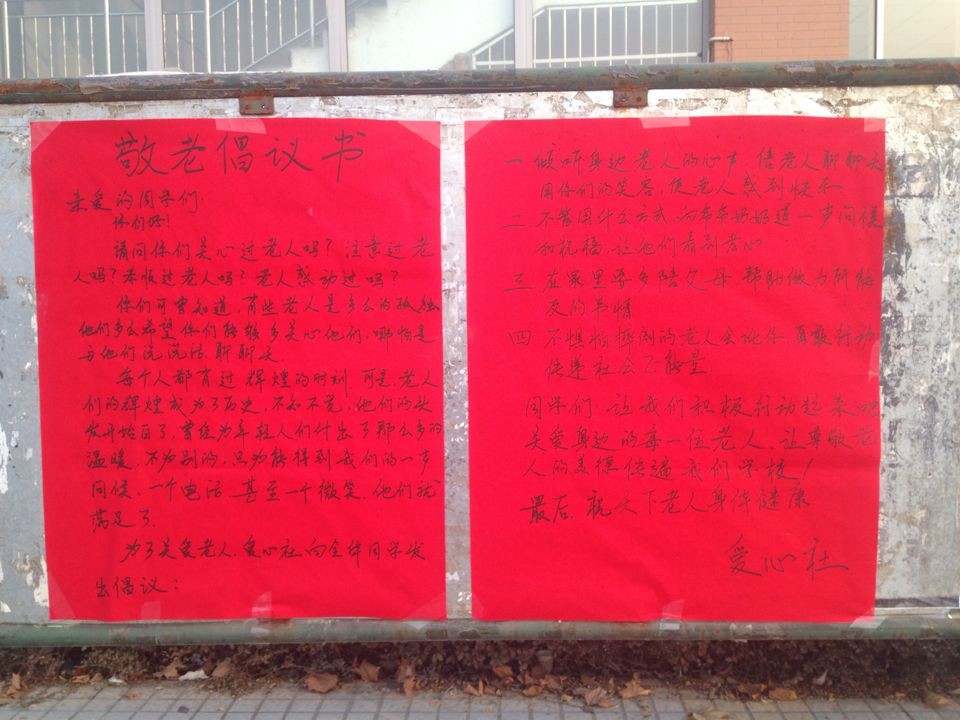 敬老倡议书
亲爱的同学们:
你们好!
请问你们关心过老人吗?注意过老
人吗?孝顺过老人吗?老人感动过吗?
你们可曾知道,有些老人是多么的孤独
他们多么希望你们能够多关心他们,哪怕是
与他们说说话,聊聊天
每个人都有过辉煌的时刻,可是,老人
们的辉煌成为了历史,不知不觉,他们的头
发开始白了,曾经为年轻人们付出了那么多的
温暖,不为别的,只为能得到我们的一声
问候,一个电话,甚至一个微笑,他们就
满足了.
为了关爱老人,爱心社向全体同学发
出倡议:
一 倾听身边老人的心声,陪老人聊聊天
用你们的笑容,使老人感到快乐
二 不管用什么方式,向爷爷奶奶道一声问候
和祝福,让他们看到孝心
三 在家里要多陪父母,帮助做力所能
及的事情
四 不惧怕摔倒的老人会讹你,勇敢行动
传递社会正能量
同学们,让我们积极行动起来吧
关爱身边的每一位老人,让尊敬老
人的美德传遍我们学校!
最后,祝天下老人身体健康
爱心社